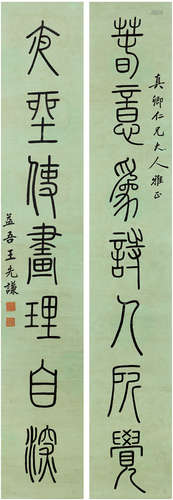 真卿仁兄大人雅正
春意為詩人所覺
夜坐使畫理自深
益吾王先謙